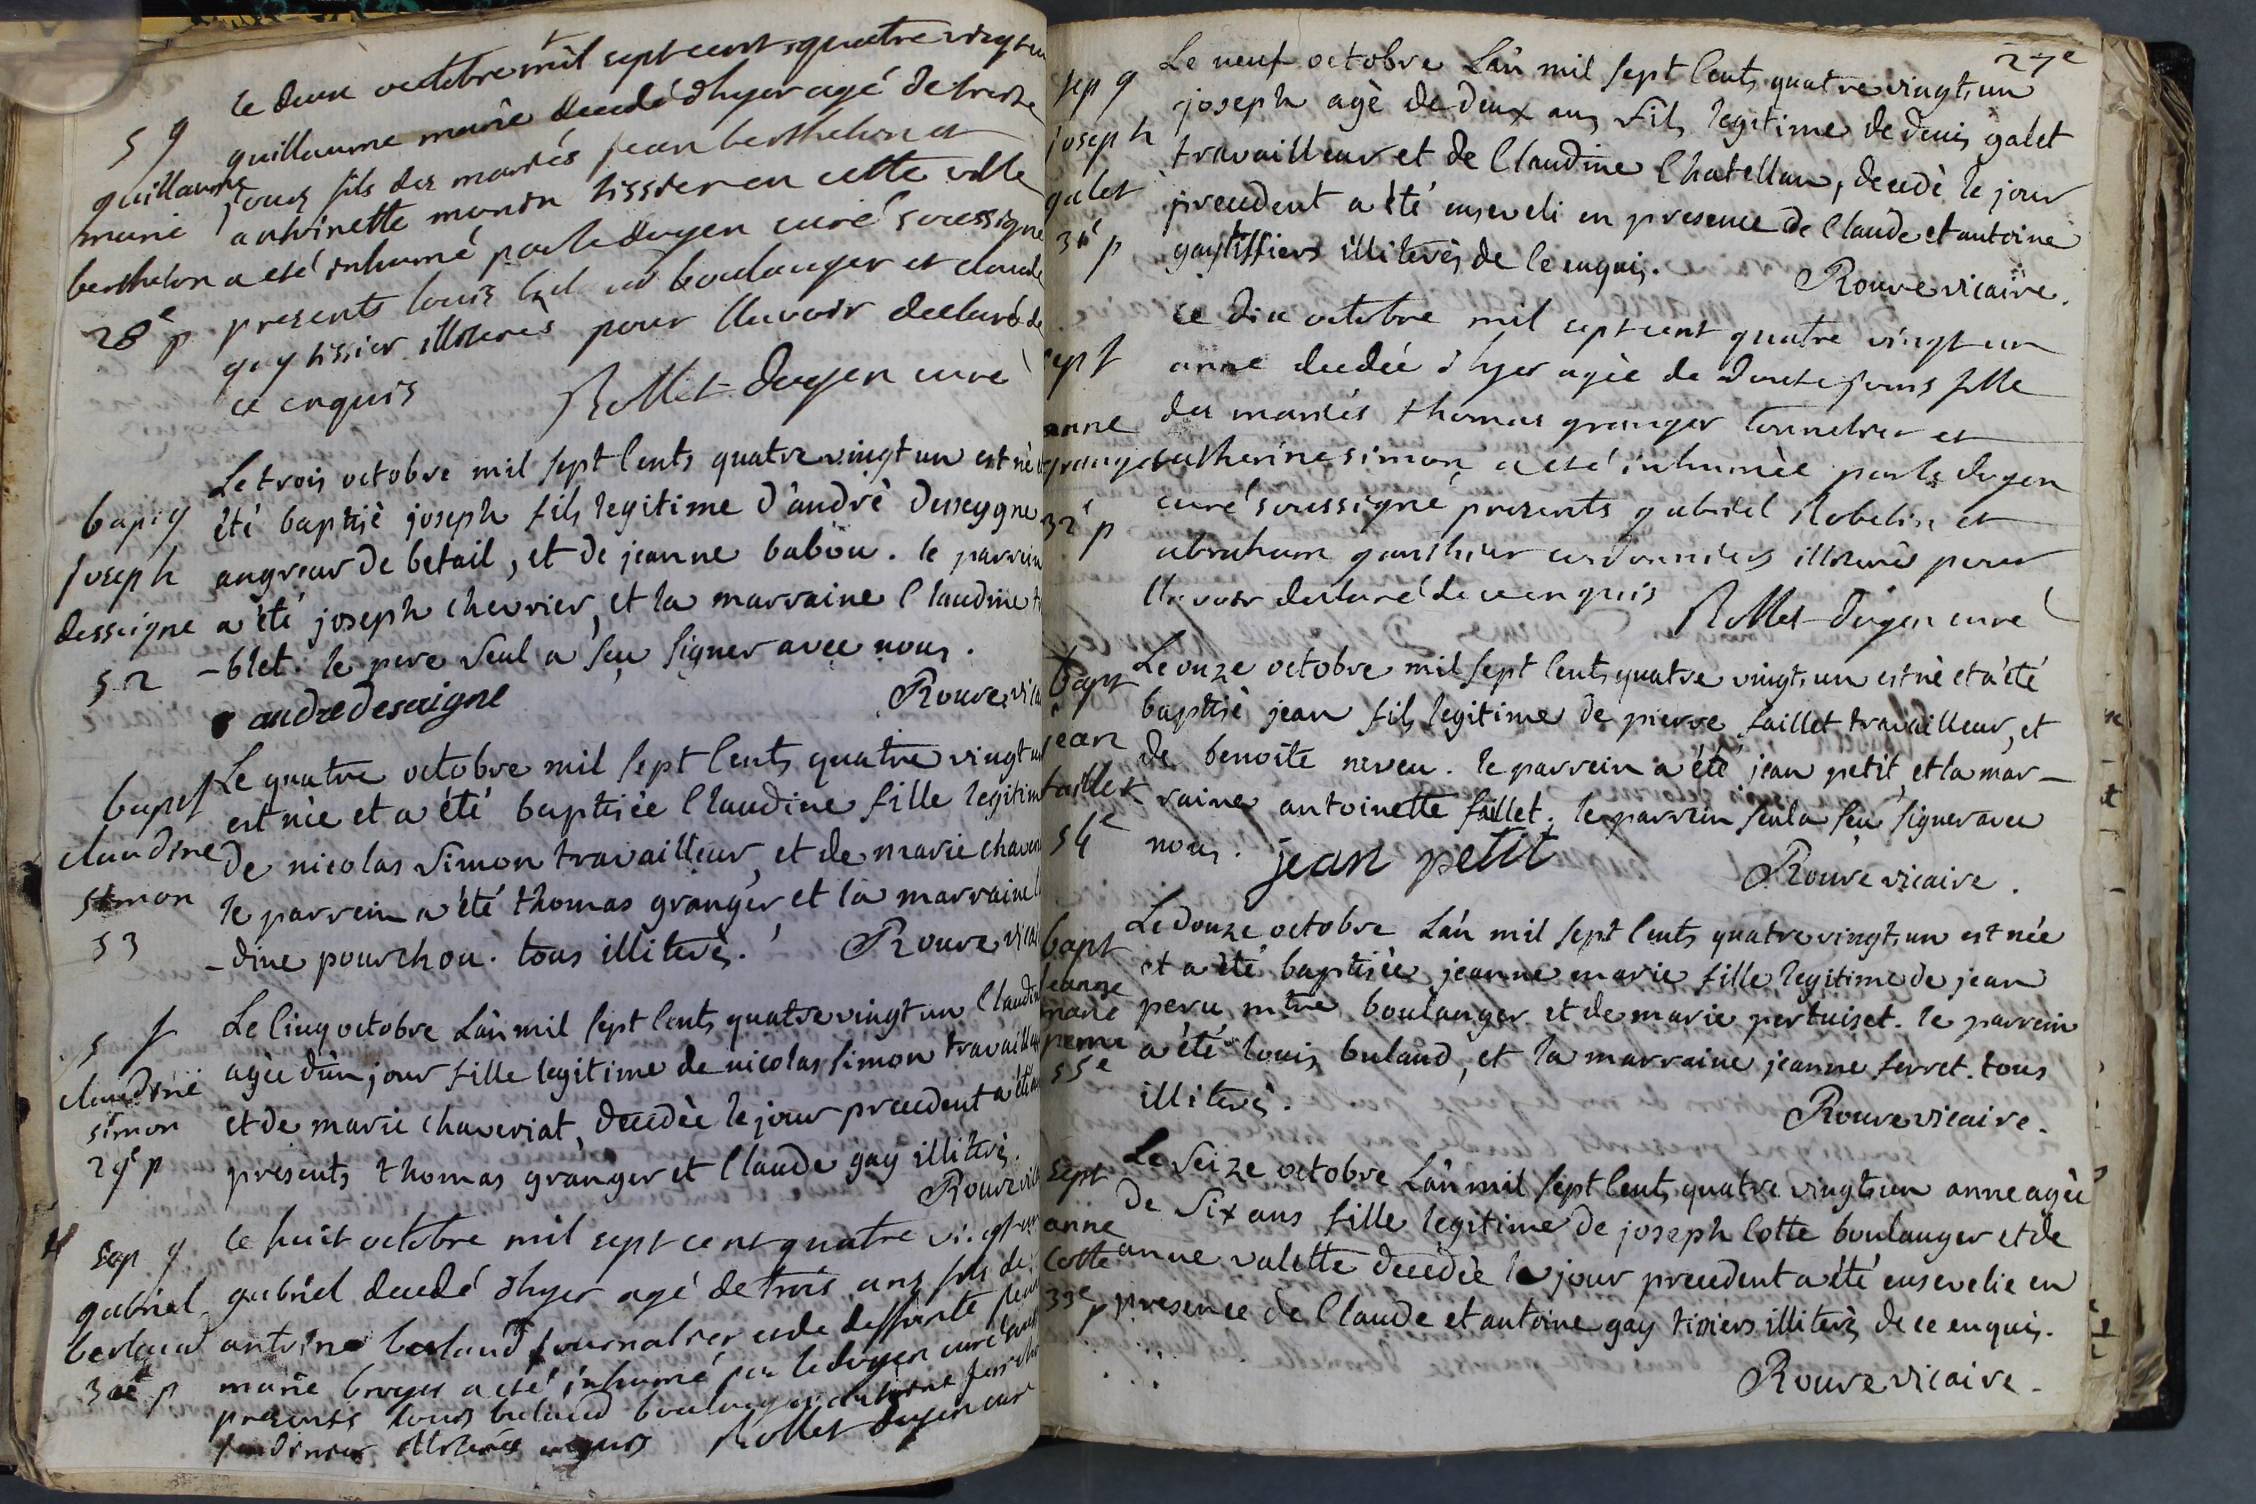 ce deux octobre mil sept cent quatre vingt un
guillaume marie decedé d'hyer agé de treize
jours fils des mariés jean berthelon et
antoinette monin tissier en cette ville
a eté inhumé par le doyen curé soussigné
presents louis buland boulanger et claude
gay tissier illiterés pour l'avoir declaré de
ce enquis
Rollet doyen curé
s g
guillaume
marie
berthelon
28e p
Le trois octobre mil sept cents quatre vingt un est né
été baptisé joseph fils legitime d'andré desseygne
angreur de betail, et de jeanne babou. le parrein
a été joseph chevrier, et la marraine Claudine
-blet. le pere seul a sçu signer avec nous.
andre desaigne
Rouve vicaire
bap: g
joseph
desseigne
52
Le quatre octobre mil sept cents quatre vingt un
est née et a été baptisée Claudine fille legitime
de nicolas simon travailleur, et de marie chaveriat
le parrein a été thomas granger et la marraine
-dine pourchou. tous illiterés.
Rouve vicaire
bapt f
claudine
simon
53
Le cinq octobre L'an mil sept cents quatre vingt un Claudine
agée d'un jour fille legitime de nicolas simon travailleur
et de marie chaveriat, decedée le jour precedent a été
presents thomas granger et Claude gay illiterés.
Rouve vicaire
s f
claudine
simon
29e p
ce huit octobre mil sept cent quatre vingt un
gabriel decedé d'hyer agé de trois ans fils de
antoine berland journalier et de deffunte
marie broyer a eté inhumé par le doyen curé
presents louis buland boulanger
illiterés enquis
Rollet doyen curé
sep g
gabriel
berland
30e p
27e
Le neuf octobre L'an mil sept cents quatre vingts un
joseph agé de deux ans fils legitime de denis galet
travailleur et de Claudine Chatellan, decedé le jour
precedent a été enseveli en presence de Claude et antoine
gay tissiers illiterés de ce enquis.
Rouve vicaire.
sep g
joseph
galet
31e p
ce dix octobre mil sept cent quatre vingt un
anne decedée d'hyer agée de douze jours fille
des mariés thomas granger tonnelier et
catherine simon a eté inhumée par le doyen
curé soussigné presents gabriel Robelin et
abraham gonthier cordonniers illiterés pour
l'avoir declaré de ce enquis
Rollet doyen curé
sept f
anne
granger
32e p
Le onze octobre mil sept cents quatre vingts un est né et a été
baptisé jean fils legitime de pierre faillet travailleur, et
de benoite neveu. le parrein a été jean petit, et la mar-
raine antoinette faillet. le parrein seul a sçu signer avec
nous.
jean petit
Rouve vicaire.
bapt
jean
faillet
54e
Le douze octobre L'an mil sept cents quatre vingts un est née
et a été baptisée jeanne marie fille legitime de jean
peru mtre boulanger et de marie pertuiset. le parrein
a été louis buland, et la marraine jeanne ferret. tous
illiterés.
Rouve vicaire.
bapt
jeanne
marie
peru
55e
Le seize octobre L'an mil sept cents quatre vingts un anne agée
de six ans fille legitime de joseph Cotte boulanger et de
anne valette decedée le jour precedent a été ensevelie en
presence de Claude et antoine gay tissiers illiterés de ce enquis.
Rouve vicaire.
sept
anne
Cotte
33e p